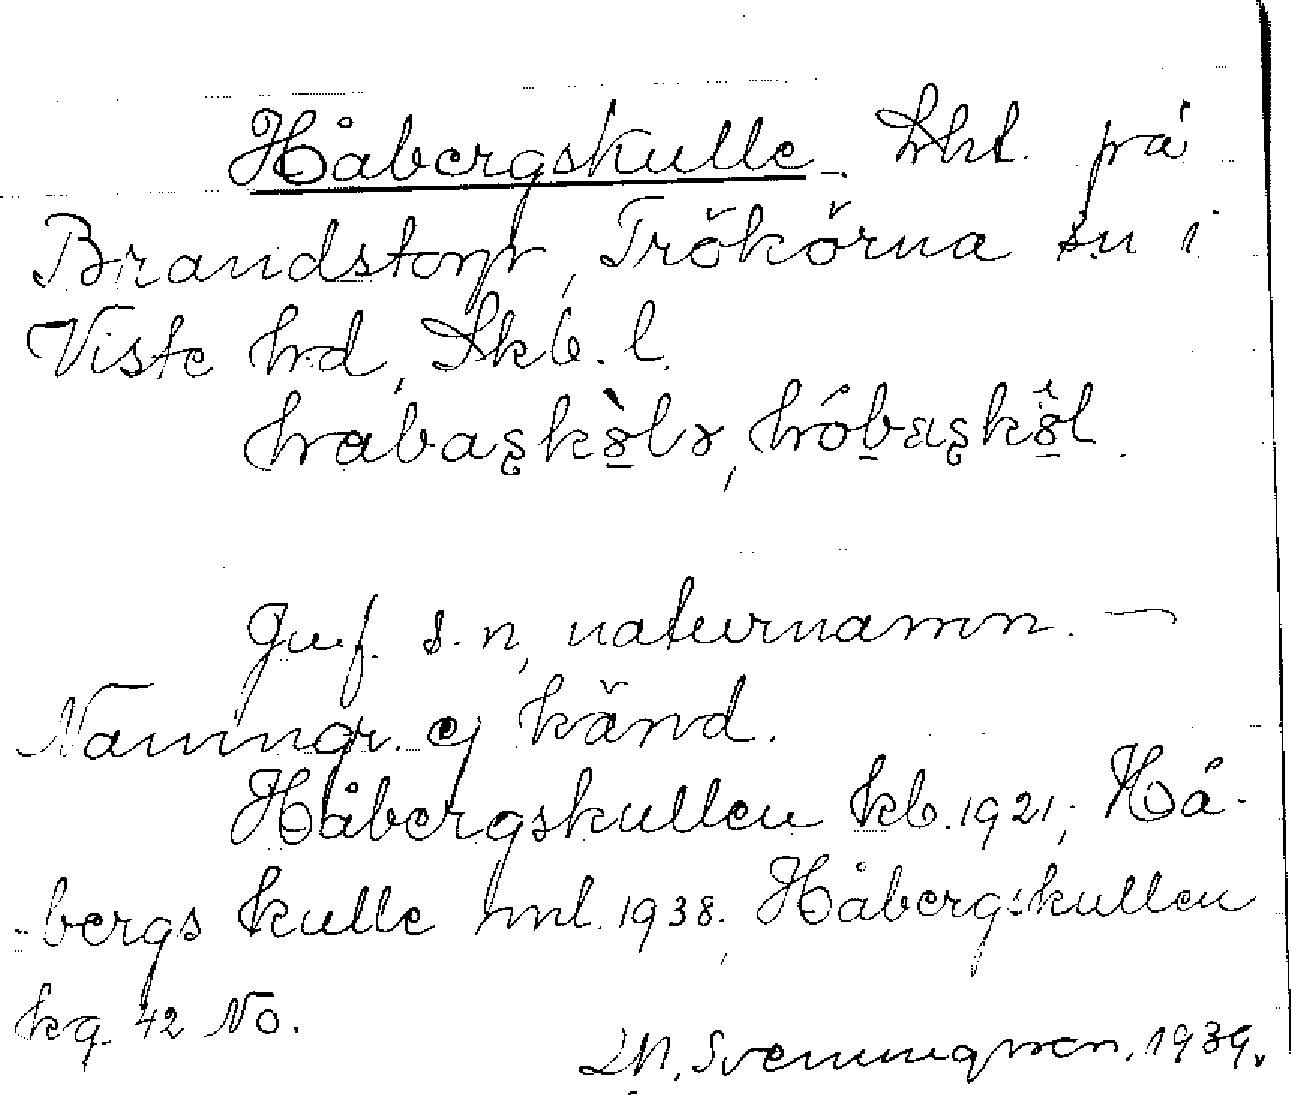 Håbergskulle. Lht. på
Brandstorp, Trökörna sn i
Viste hd, Skb. l.
Jmf. s. n, naturnamn. —
Namngr. ej känd.
Håbergskullen kb. 1921; Hå-
bergs kulle jml. 1938, Håbergskullen
kq 42 No.
Svenningsson. 1939.